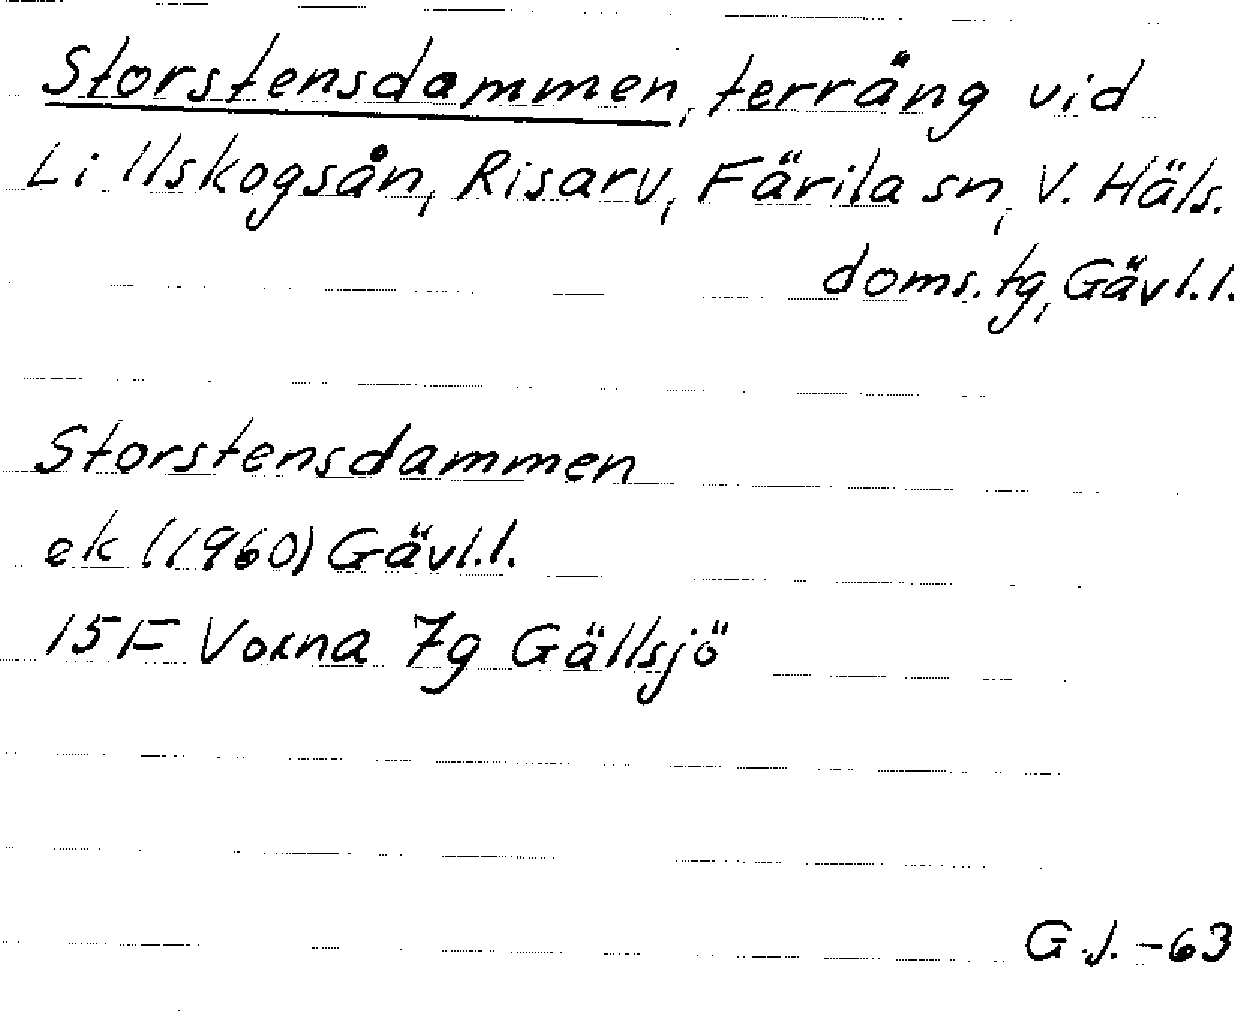 Storstensdammen, terräng vid
Lillskogsån, Risarv, Färila sn, V. Häls.
doms.tg, Gävl.l.
Storstensdammen
ek (1960) Gävl.l.
15F Voxna 7g Gällsjö
G.J. -63